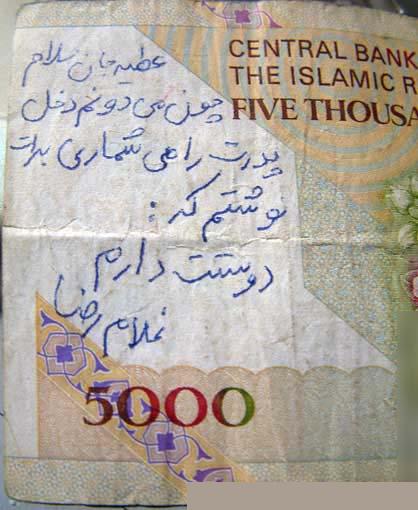 عطیه جان سلام
چون می دونم دخل
پدرت را می شماری برات
نوشتم که :
دوستت دارم
غلام رضا
CENTRAL BANK
THE ISLAMIC R
FIVE THOUSA
5000